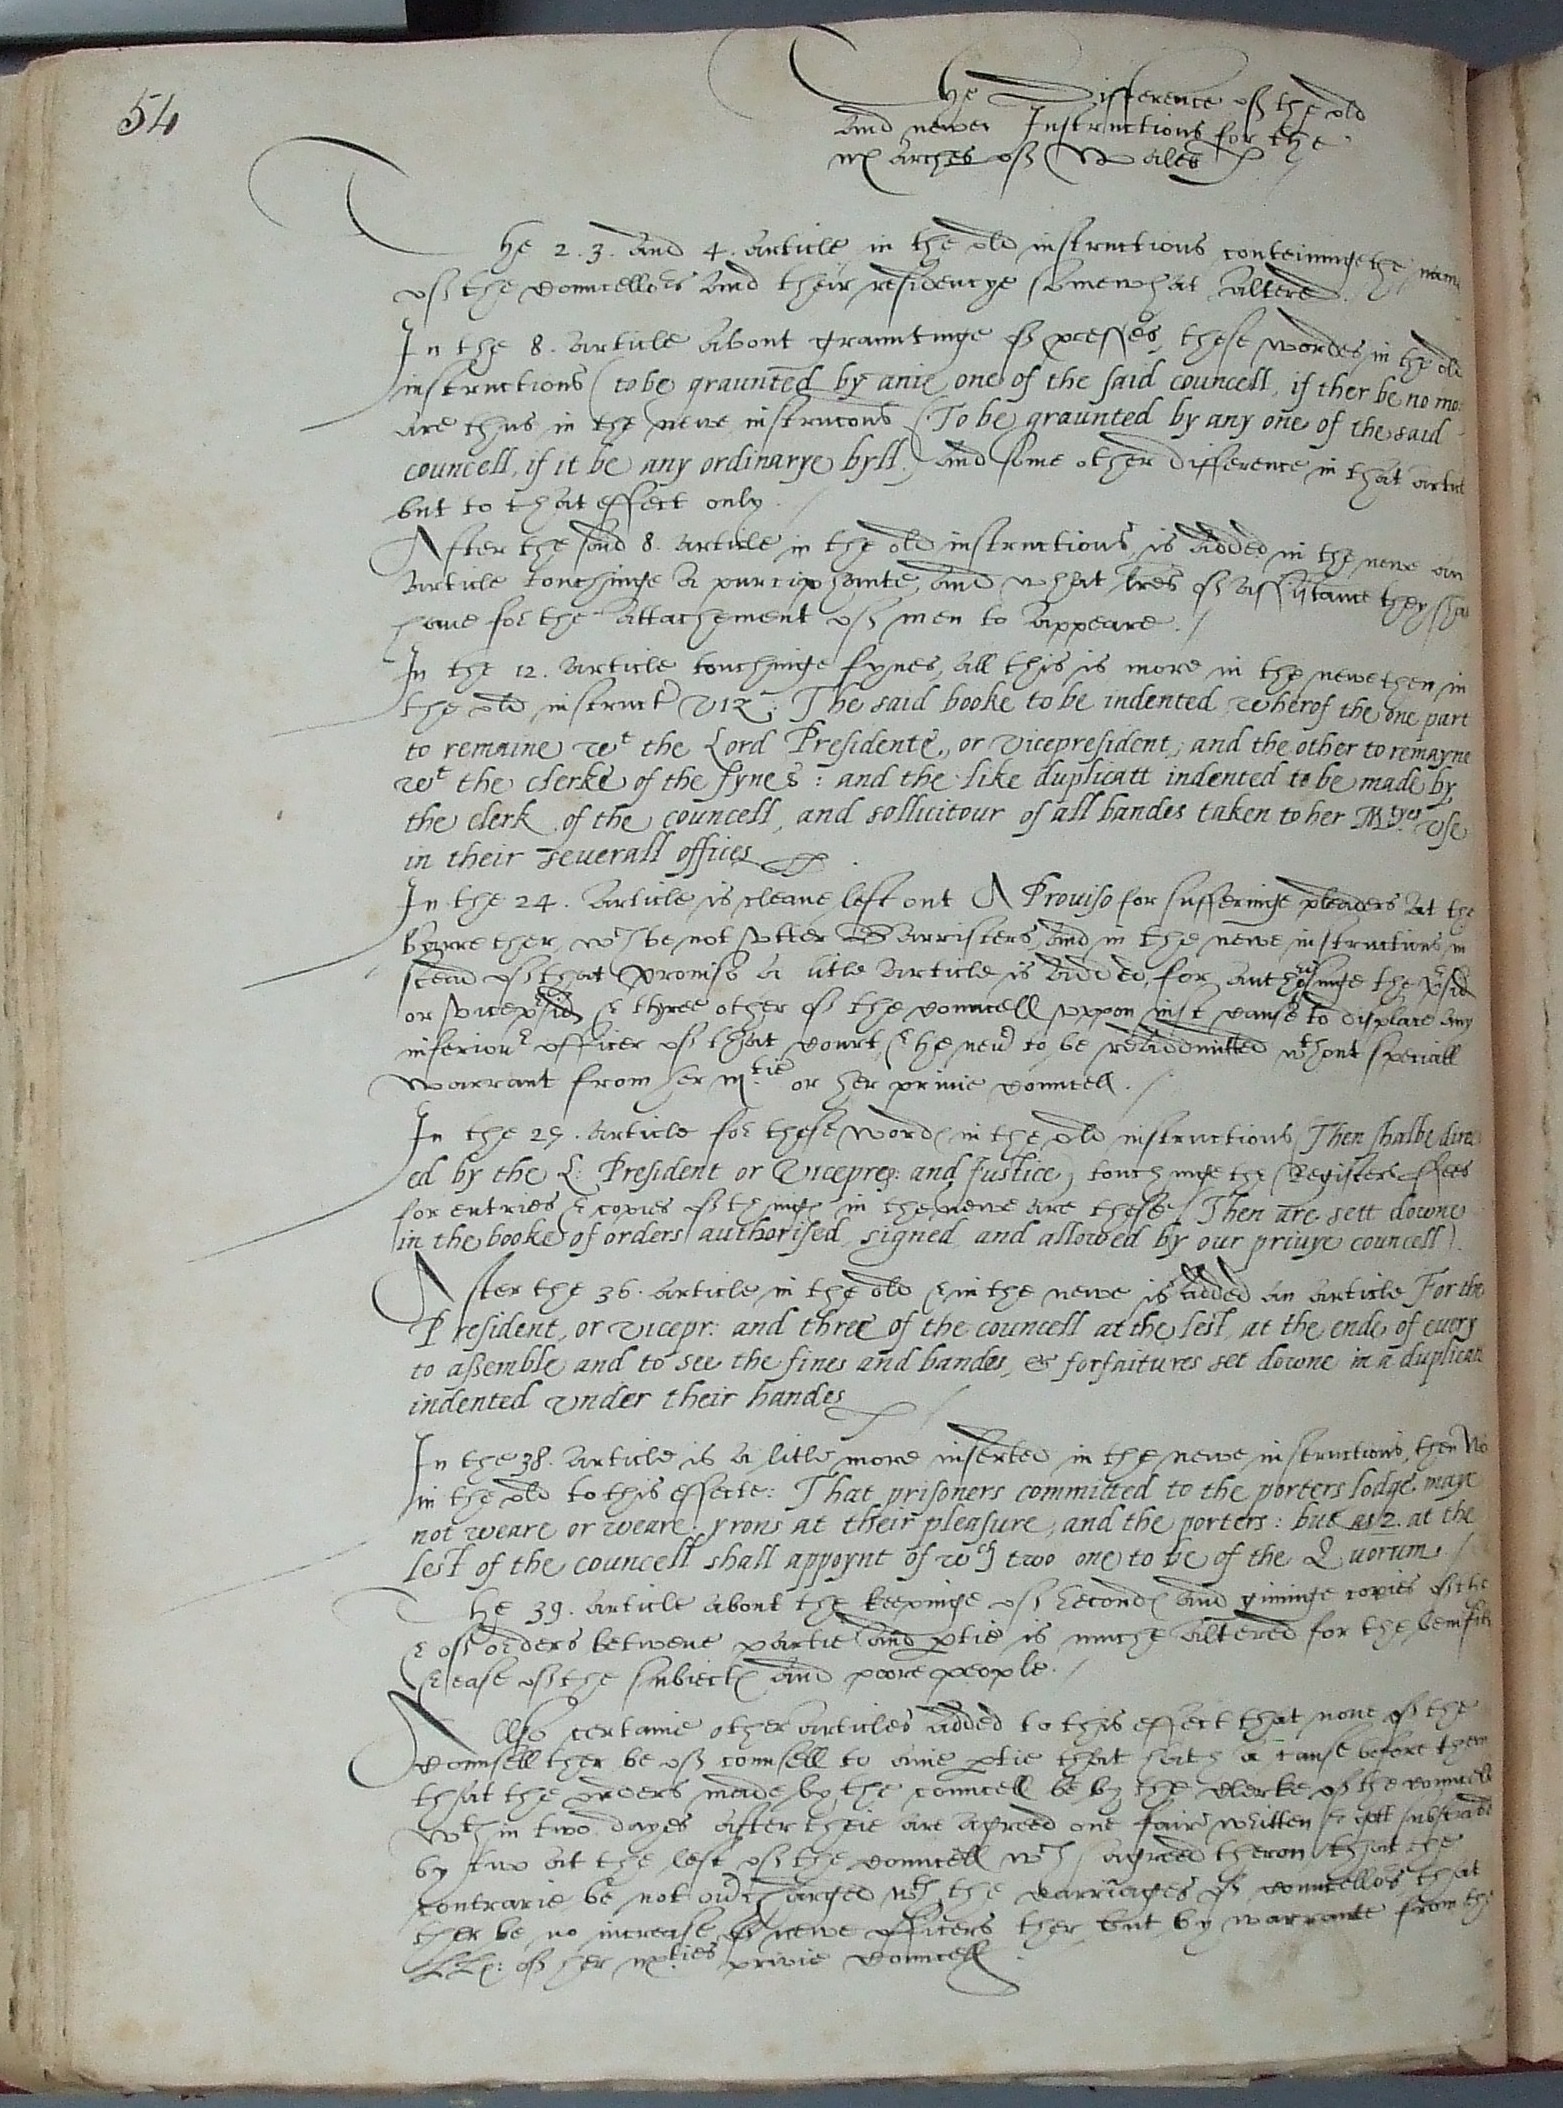 54
The Difference off the old
and newe Instructions for the
Marches off Wales
The 2. 3. and 4. article in the old instructions conteininge the name
off the Councellors and their residencye somewhat altered.
In the 8. article about grauntinge off processes, these wordes in the old
instructions (to be graunted by anie one of the said councell, if ther be no mo:
are thus in the newe instrucons (To be graunted by any one of the said
councell, if it be any ordinarye byll.) and some other difference in that article
but to that effect only.
After the said 8. article in the old instructions, is added in the newe an
article touchinge a pursiphante, and what lres off assistance they shall
haue for the attachement off men to appeare.
In the 12. article touchinge fynes, all this is more in the newe then in
the old instruct viz; The said booke to be indented wherof the one part
to remaine wt the Lord Presidente, or vicepresident, and the other to remayne
wt the clerke of the fynes: and the like duplicatt indented to be made by
the clerk of the councell, and sollicitour of all bandes taken to her Mtyes vse
in their seuerall offices
In the 24. article is cleane left out A Prouiso for sufferinge pleaders at the
barre ther, wch be not vtter Barristers, and in the newe instructions in
stead off that Prouiso a litle article is added, for authorisinge the psid
or vicepsid & three other off the Councell vppon iust cause to displace any
inferiour officer off that Court, & he neu to be readmitted wthout speciall
warrant from her Mtie or her priuie Councell.
In the 27. article for these word in the old instructions (Then shalbe direct
ed by the L: President or Vicepres: and Justice) touchinge the Registers ffees
for entries & copies off things in the newe are these (Then are sett downe
in the booke of orders authorised signed and allowed by our priuye councell).
After the 36. article in the old & in the newe is added an article For the
President, or vicepr: and three of the councell at the lest, at the ende of euery
to assemble and to see the fines and bandes, & forfaitures set downe in a duplicate
indented vnder their handes
In the 38. article is a litle more inserted in the newe instructions, then
in the old to this effecte: That prisoners committed to the porters lodge maye
not weare or weare yrons at their pleasure, and the porters: but as 2. at the
lest of the councell shall appoynt of wch two one to be of the Quorum
The 39. article about the keepinge off Records and giuinge copies off the
& off orders betwene partie and ptie is muche altered for the benifitt
& ease off the subiects and poore people.
Also certaine other articles added to this effect that none off the
Counsell ther be off counsell to anie ptie that hath a cause before them
that the orders made by the councell be by the Clerke off the councell
wthin two dayes after theie are agreed one faire written & subscribed
by two at the lest off the Councell wch agreed theron that the
contrarie be not ouercharged wth the carriages off Councellors that
ther be no increase off newe officers ther but by warrante from the
LLs: off her Mties priuie Councell